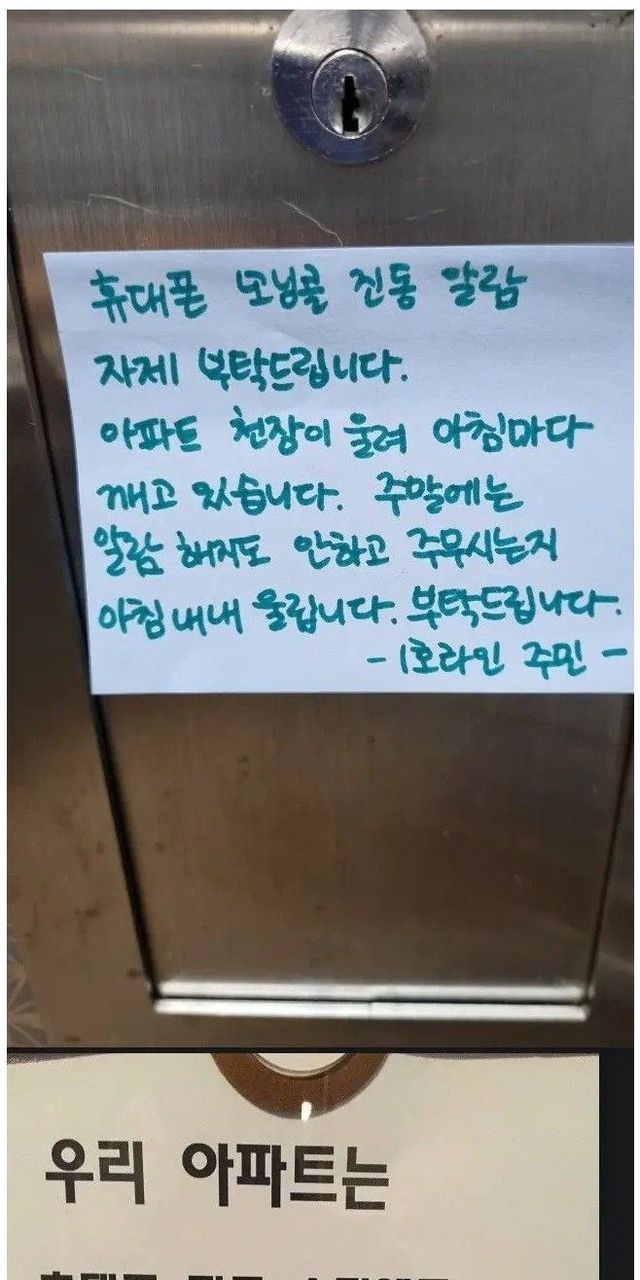 휴대폰 모닝콜 진동 알람
자제 부탁드립니다.
아파트 천장이 울려 아침마다
깨고 있습니다. 주말에는
알람 해지도 안하고 주무시는지
아침내내 울립니다. 부탁드립니다.
- 1호라인 주민 -
우리 아파트는